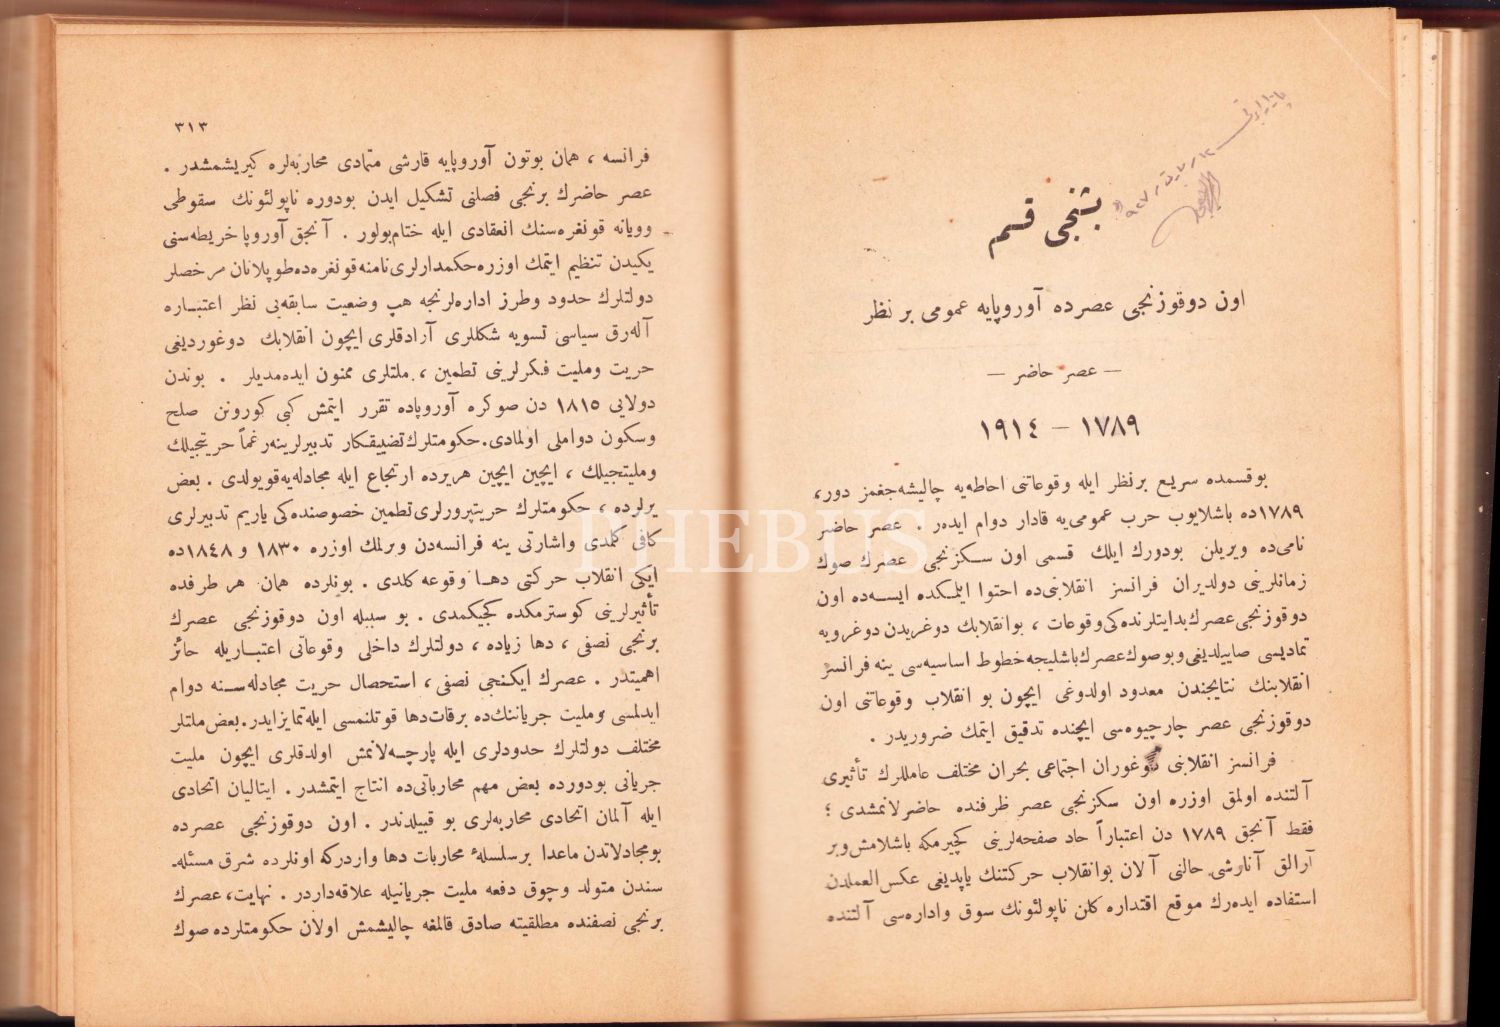 بشنجی قسم
اون دوقوزنجی عصرده آوروپایه عمومی بر نظر
— عصر حاضر —
١٧٨٩ — ١٩١٤
بوقسمده سریع برنظر ایله وقوعاتنی احاطه‌یه چالیشه‌جغمز دور،
١٧٨٩ده باشلایوب حرب عمومی‌یه قادار دوام ایدەر . عصر حاضر
نامی‌ده ویریلن بودورك ایلك قسمی اون سکزنجی عصرك صوك
زمانلرینی دولدیران فرانسز انقلابنی‌ده احتوا ایلمکده ایسه‌ده اون
دوقوزنجی عصرك بدایتلرنده‌کی وقوعات ، بوانقلابك دوغریدن دوغرویه
تمادیسی صاییلدیغی و بوصوك عصرك باشلیجه خطوط اساسیه‌سی ینه فرانسز
انقلابنك نتایجندن معدود اولدوغی ایچون بو انقلاب وقوعاتنی اون
دوقوزنجی عصر چارچیوه‌سی ایچنده تدقیق ایتمك ضروریدر .
فرانسز انقلابنی دوغوران اجتماعی بحران مختلف عامللرك تأثیری
آلتنده اولمق اوزره اون سکزنجی عصر ظرفنده حاضرلانمشدی ؛
فقط آنجق ١٧٨٩ دن اعتباراً حاد صفحه‌لرینی کچیرمکه باشلامش وبر
آرالق آنارشی حالنی آلان بوانقلاب حرکتنك یاپدیغی عکس‌العملدن
استفاده ایدەرك موقع اقتداره کلن ناپولئونك سوق واداره‌سی آلتنده
٣١٣
فرانسه ، همان بوتون آوروپایه قارشی متمادی محاربه‌لره کیریشمشدر .
عصر حاضرك برنجی فصلنی تشکیل ایدن بودوره ناپولئونك سقوطی
وویانه قونغره‌سنك انعقادی ایله ختام‌بولور . آنجق آوروپا خریطه‌سنی
یکیدن تنظیم ایتمك اوزره حکمدارلری نامنه قونغره‌ده طوپلانان مرخصلر
دولتلرك حدود وطرز اداره‌لرنجه هپ وضعیت سابقه‌یی نظر اعتباره
آله‌رق سیاسی تسویه شکللری آرادقلری ایچون انقلابك دوغوردیغی
حریت وملیت فکرلرینی تطمین ، ملتلری ممنون ایده‌مدیلر . بوندن
دولایی ١٨١٥ دن صوکره آوروپاده تقرر ایتمش کبی کورونن صلح
وسکون دواملی اولمادی. حکومتلرك تضییقکار تدبیرلرینه رغماً حریتجیلك
وملیتجیلك ، ایچین ایچین هریرده ارتجاع ایله مجادله‌یه قویولدی . بعض
یرلرده ، حکومتلرك حریتپرورلری تطمین خصوصنده‌کی یاریم تدبیرلری
کافی کلمدی واشارتی ینه فرانسه‌دن ویرلمك اوزره ١٨٣٠ و ١٨٤٨ده
ایکی انقلاب حرکتی دها وقوعه کلدی . بونلرده همان هر طرفده
تأثیرلرینی کوسترمکده کجیکمدی . بو سببله اون دوقوزنجی عصرك
برنجی نصفی ، دها زیاده ، دولتلرك داخلی وقوعاتی اعتباریله حائز
اهمیتدر . عصرك ایکنجی نصفی ، استحصال حریت مجادله‌سنه دوام
ایدلمسی وملیت جریاننك‌ده برقات‌دها قوتلنمسی ایله تمایزایدر. بعض ملتلر
مختلف دولتلرك حدودلری ایله پارچه‌لانمش اولدقلری ایچون ملیت
جریانی بودورده بعض مهم محارباتی‌ده انتاج ایتمشدر . ایتالیان اتحادی
ایله آلمان اتحادی محاربه‌لری بو قبیلدندر . اون دوقوزنجی عصرده
بومجادلاتدن ماعدا برسلسلهٔ محاربات دها واردرکه اونلرده شرق مسئله‌ـ
سندن متولد وچوق دفعه ملیت جریانیله علاقه‌داردر . نهایت، عصرك
برنجی نصفنده مطلقیته صادق قالمغه چالیشمش اولان حکومتلرده صوك
PHEBUS